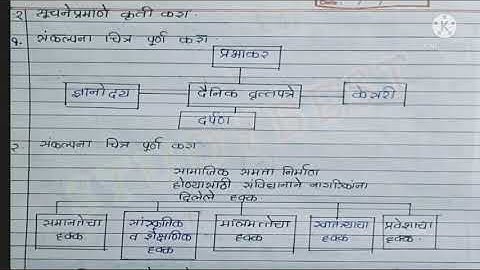 २ सूचनेप्रमाणे कृती करा.
१. संकल्पना चित्र पूर्ण करा.
प्रभाकर
ज्ञानोदय दैनिक वृत्तपत्रे केसरी
दर्पण
२. संकल्पना चित्र पूर्ण करा
सामाजिक समता निर्माण
होण्यासाठी संविधानाने नागरिकांना
दिलेले हक्क
समानतेचा सांस्कृतिक मालमत्तेचा स्वातंत्र्याचा प्रवेशाचा
हक्क व शैक्षणिक हक्क हक्क हक्क.
हक्क